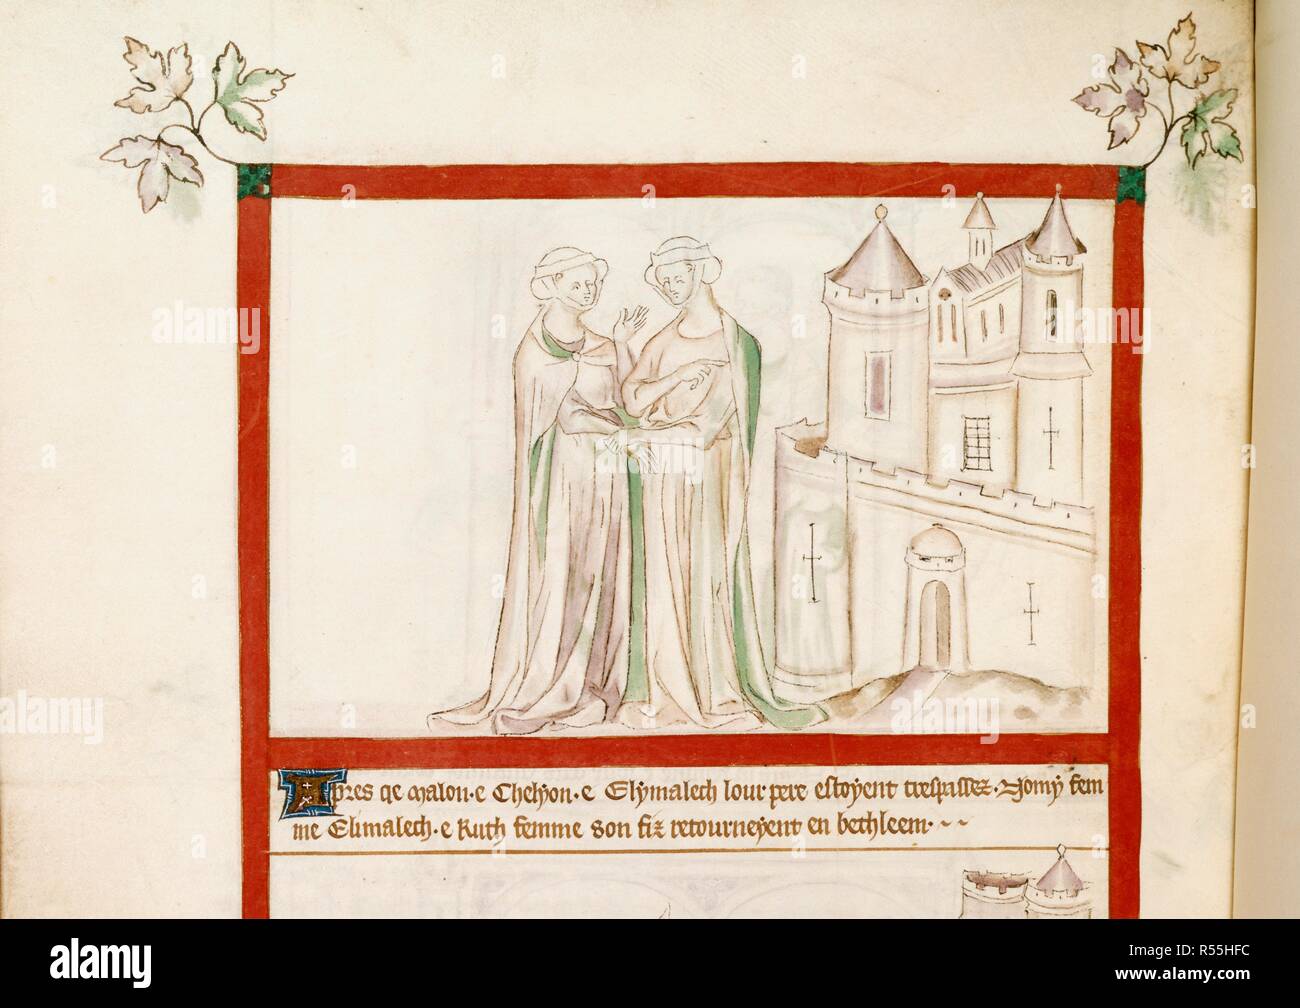 Apres qe Malon · e Chelyon · e Elymalech lour pere estoyent trespassez · Nomy fem
me Elimalech · e Ruth femme son fiz retourneyent en bethleem ·
alamy
alamy
a
a
a
alamy stock photo
Image ID: R55HFC
www.alamy.com